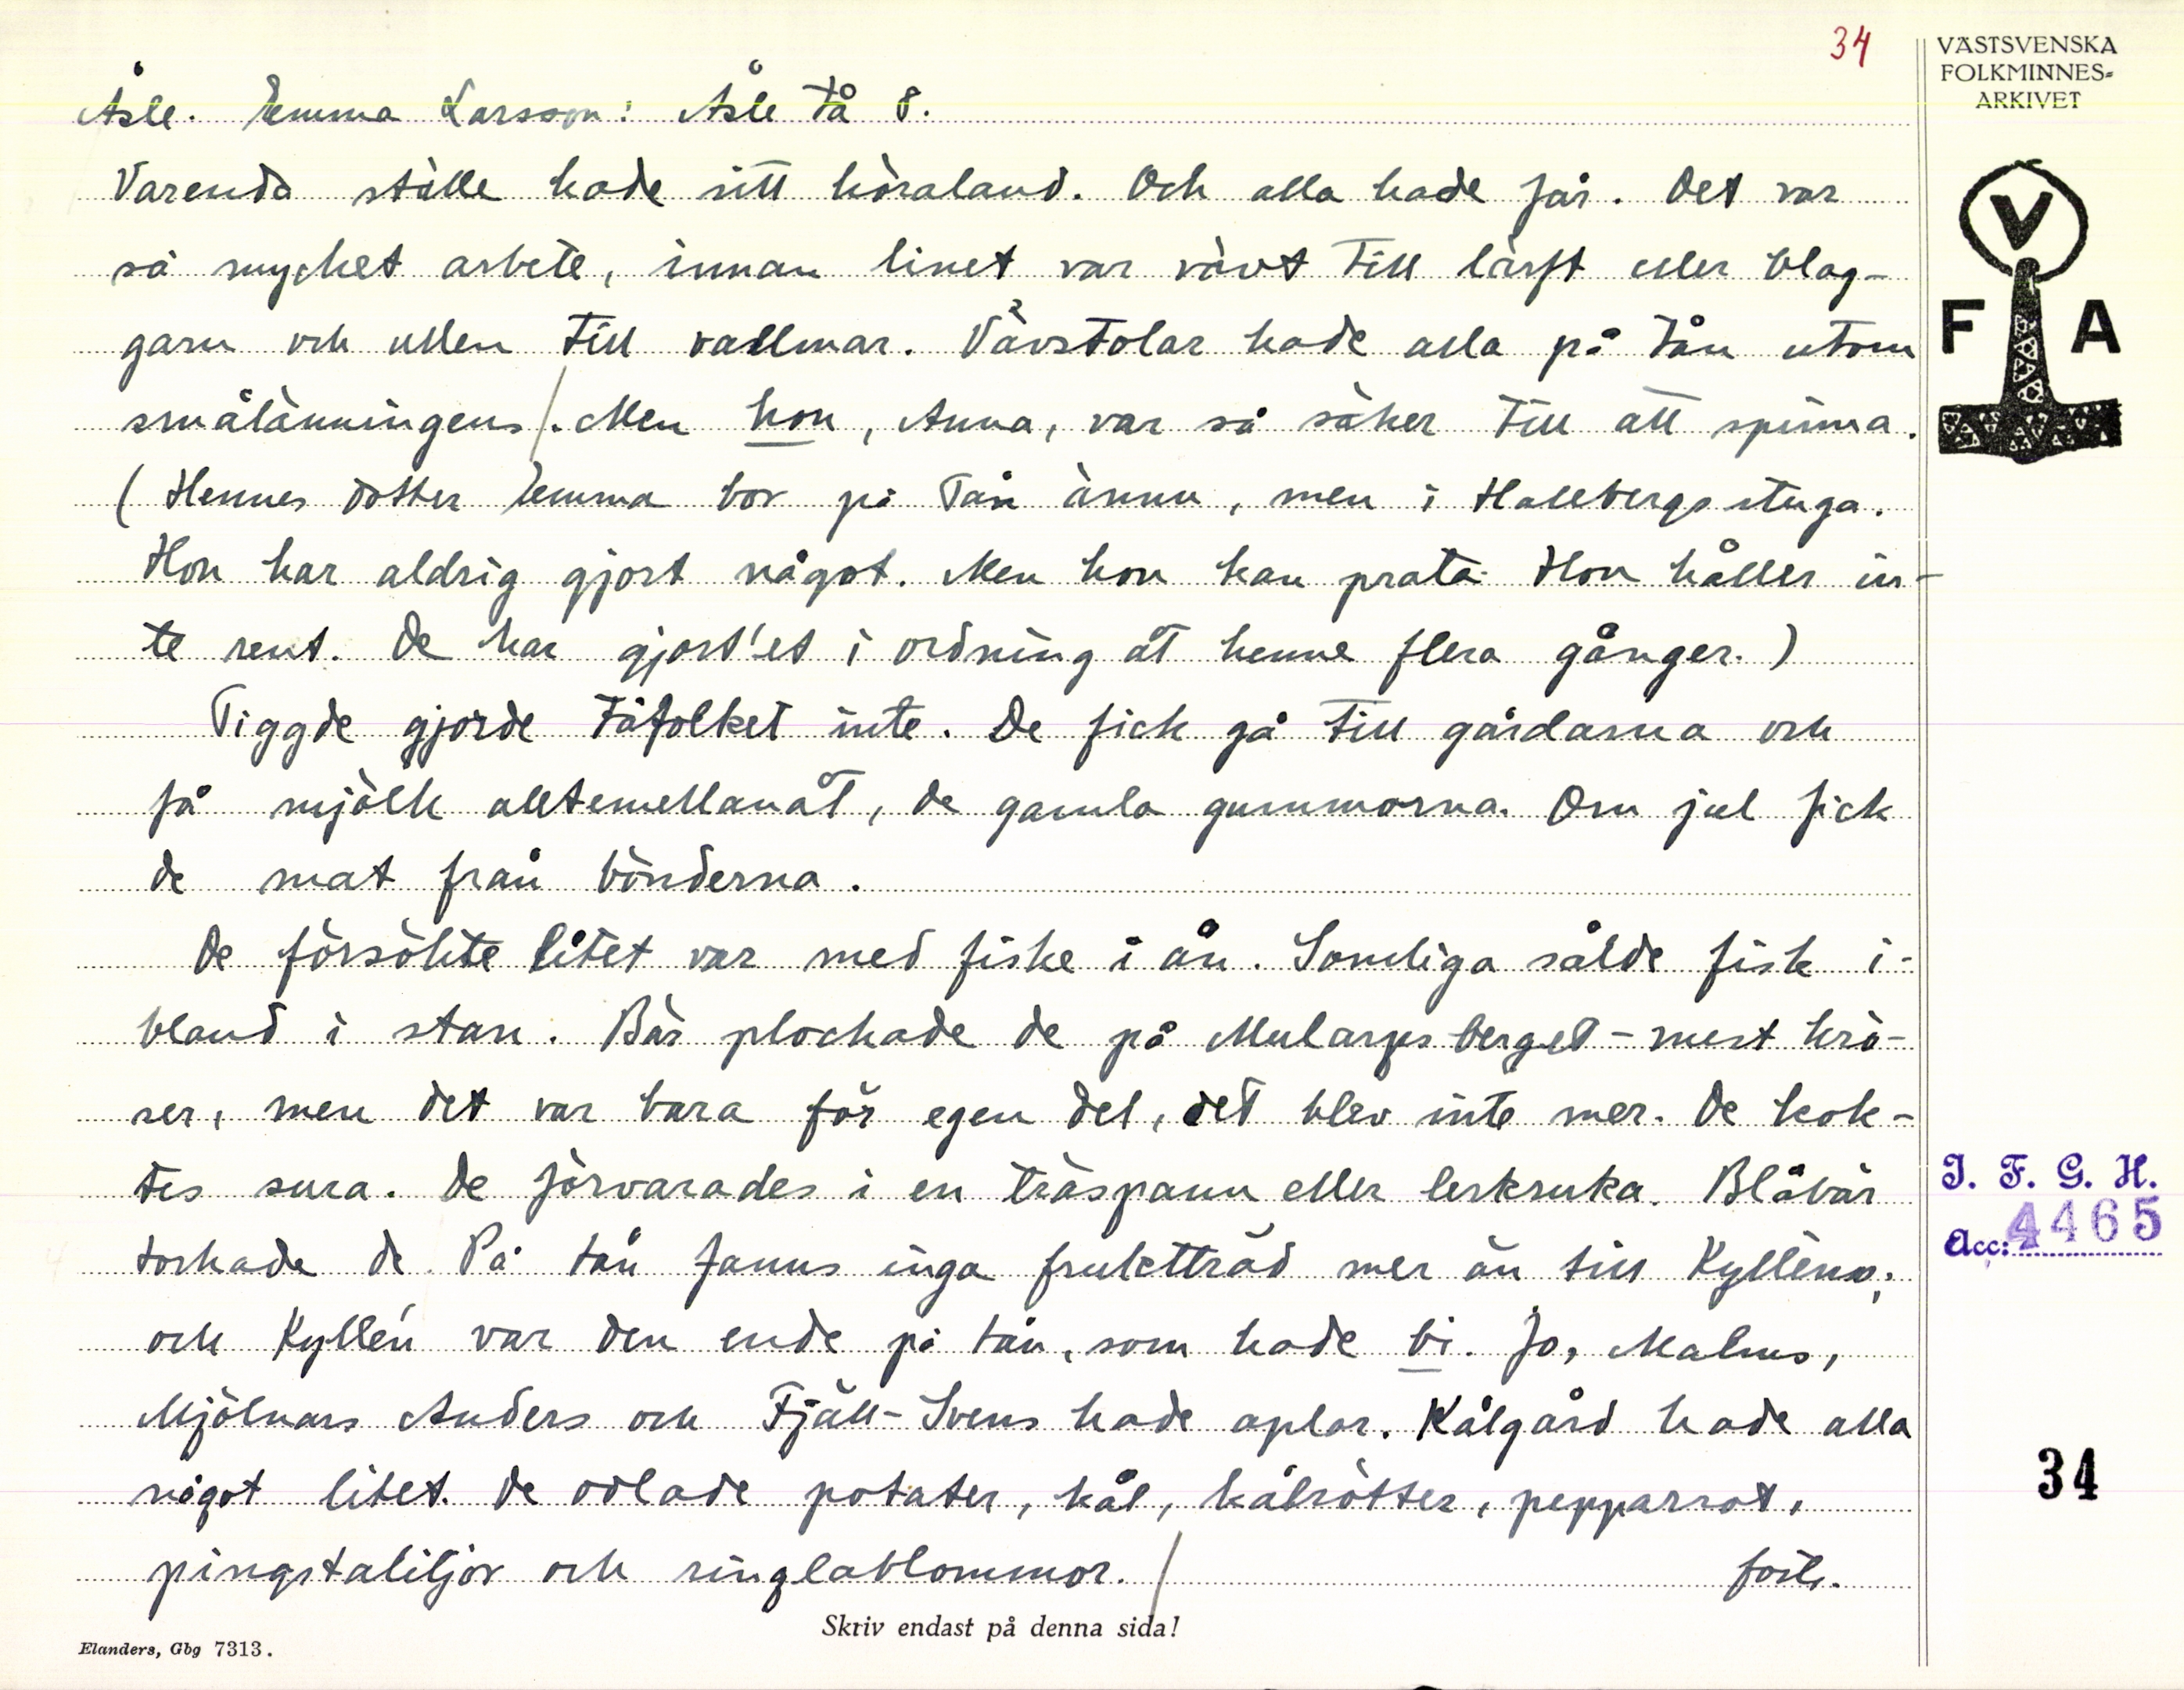 34
VÄSTSVENSKA
FOLKMINNES-
ARKIVET
V
F A
Åsle. Emma Larsson: Åsle tå 8.
Varenda ställe hade sitt höraland. Och alla hade får. Det var
så mycket arbete, innan linet var vävt till lärft eller blag-
garn och ullen till vadmar. Vävstolar hade alla på tån utom
smålänningens. Men hon, Anna, var så säker till att spinna.
(Hennes dotter Emma bor på Tån ännu, men i Hallbergs stuga.
Hon har aldrig gjort något. Men hon kan prata. Hon håller in-
te rent. De har gjort'et i ordning åt henne flera gånger.)
Tiggde gjorde tåfolket inte. De fick gå till gårdarna och
få mjölk alltemellanåt, de gamla gummorna. Om jul fick
de mat från bönderna.
De försökte litet var med fiske i ån. Somliga sålde fisk i-
bland i stan. Bär plockade de på Mularpsberget - mest krö-
ser, men det var bara för egen del, det blev inte mer. De kok-
tes sura. De förvarades i en träspann eller lerkruka. Blåbär
torkade de. På tån fanns inga fruktträd mer än till Kylléns,
och Kyllén var den ende på tån, som hade bi. Jo, Malms,
Mjölnars Anders och Fjäll-Svens hade aplar. Kålgård hade alla
något litet. De odlade potater, kål, kålrötter, pepparrot,
pingstaliljor och ringlablommor.
forts.
Skriv endast på denna sida!
Elanders, Gbg 7313.
I. F. G. H.
Acc: 4465
34